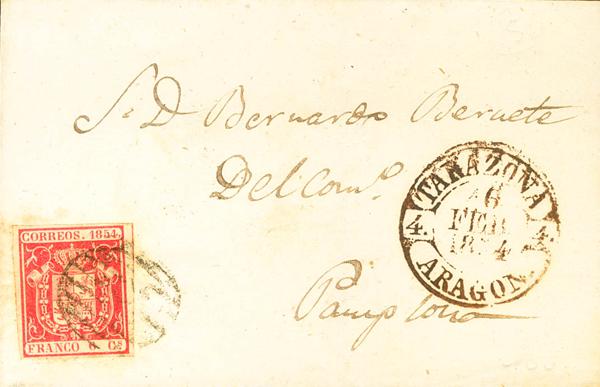 Sr. D Bernardo Beruete
Del Com.o
Pamplona
TARAZONA
16
FEB
1854
ARAGON.
4 4
CORREOS. 1854.
FRANCO 6 Cs